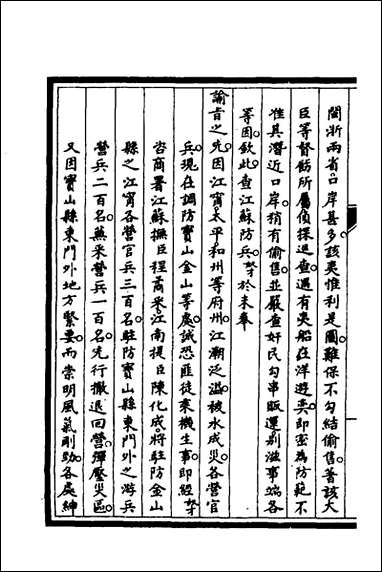 閩浙兩省。口岸甚多。該夷惟利是圖。難保不勾結偷售。著該大
臣等督飭所屬偵探巡查。遇有夷船在洋遊奕。即密為防範。不
准其潛近口岸。稍有偷售。並嚴查奸民勾串販運。别滋事端。各
等因。欽此。查江蘇防兵。奴才於未奉
諭旨之先。因江甯。太平。和州等府州。江潮泛溢。被水成災。各營官
兵。現在調防寶山金山等處。誠恐匪徒乘機生事。即經奴才
咨商署江蘇撫臣程矞采。江南提臣陳化成。將駐防金山
縣之江甯各營官兵三百名。駐防寶山縣東門外之游兵
營兵二百名。蕪采營兵一百名。先行撤退回營。彈壓災區。
又因寶山縣東門外地方緊要。而崇明風氣剛勁。各處紳